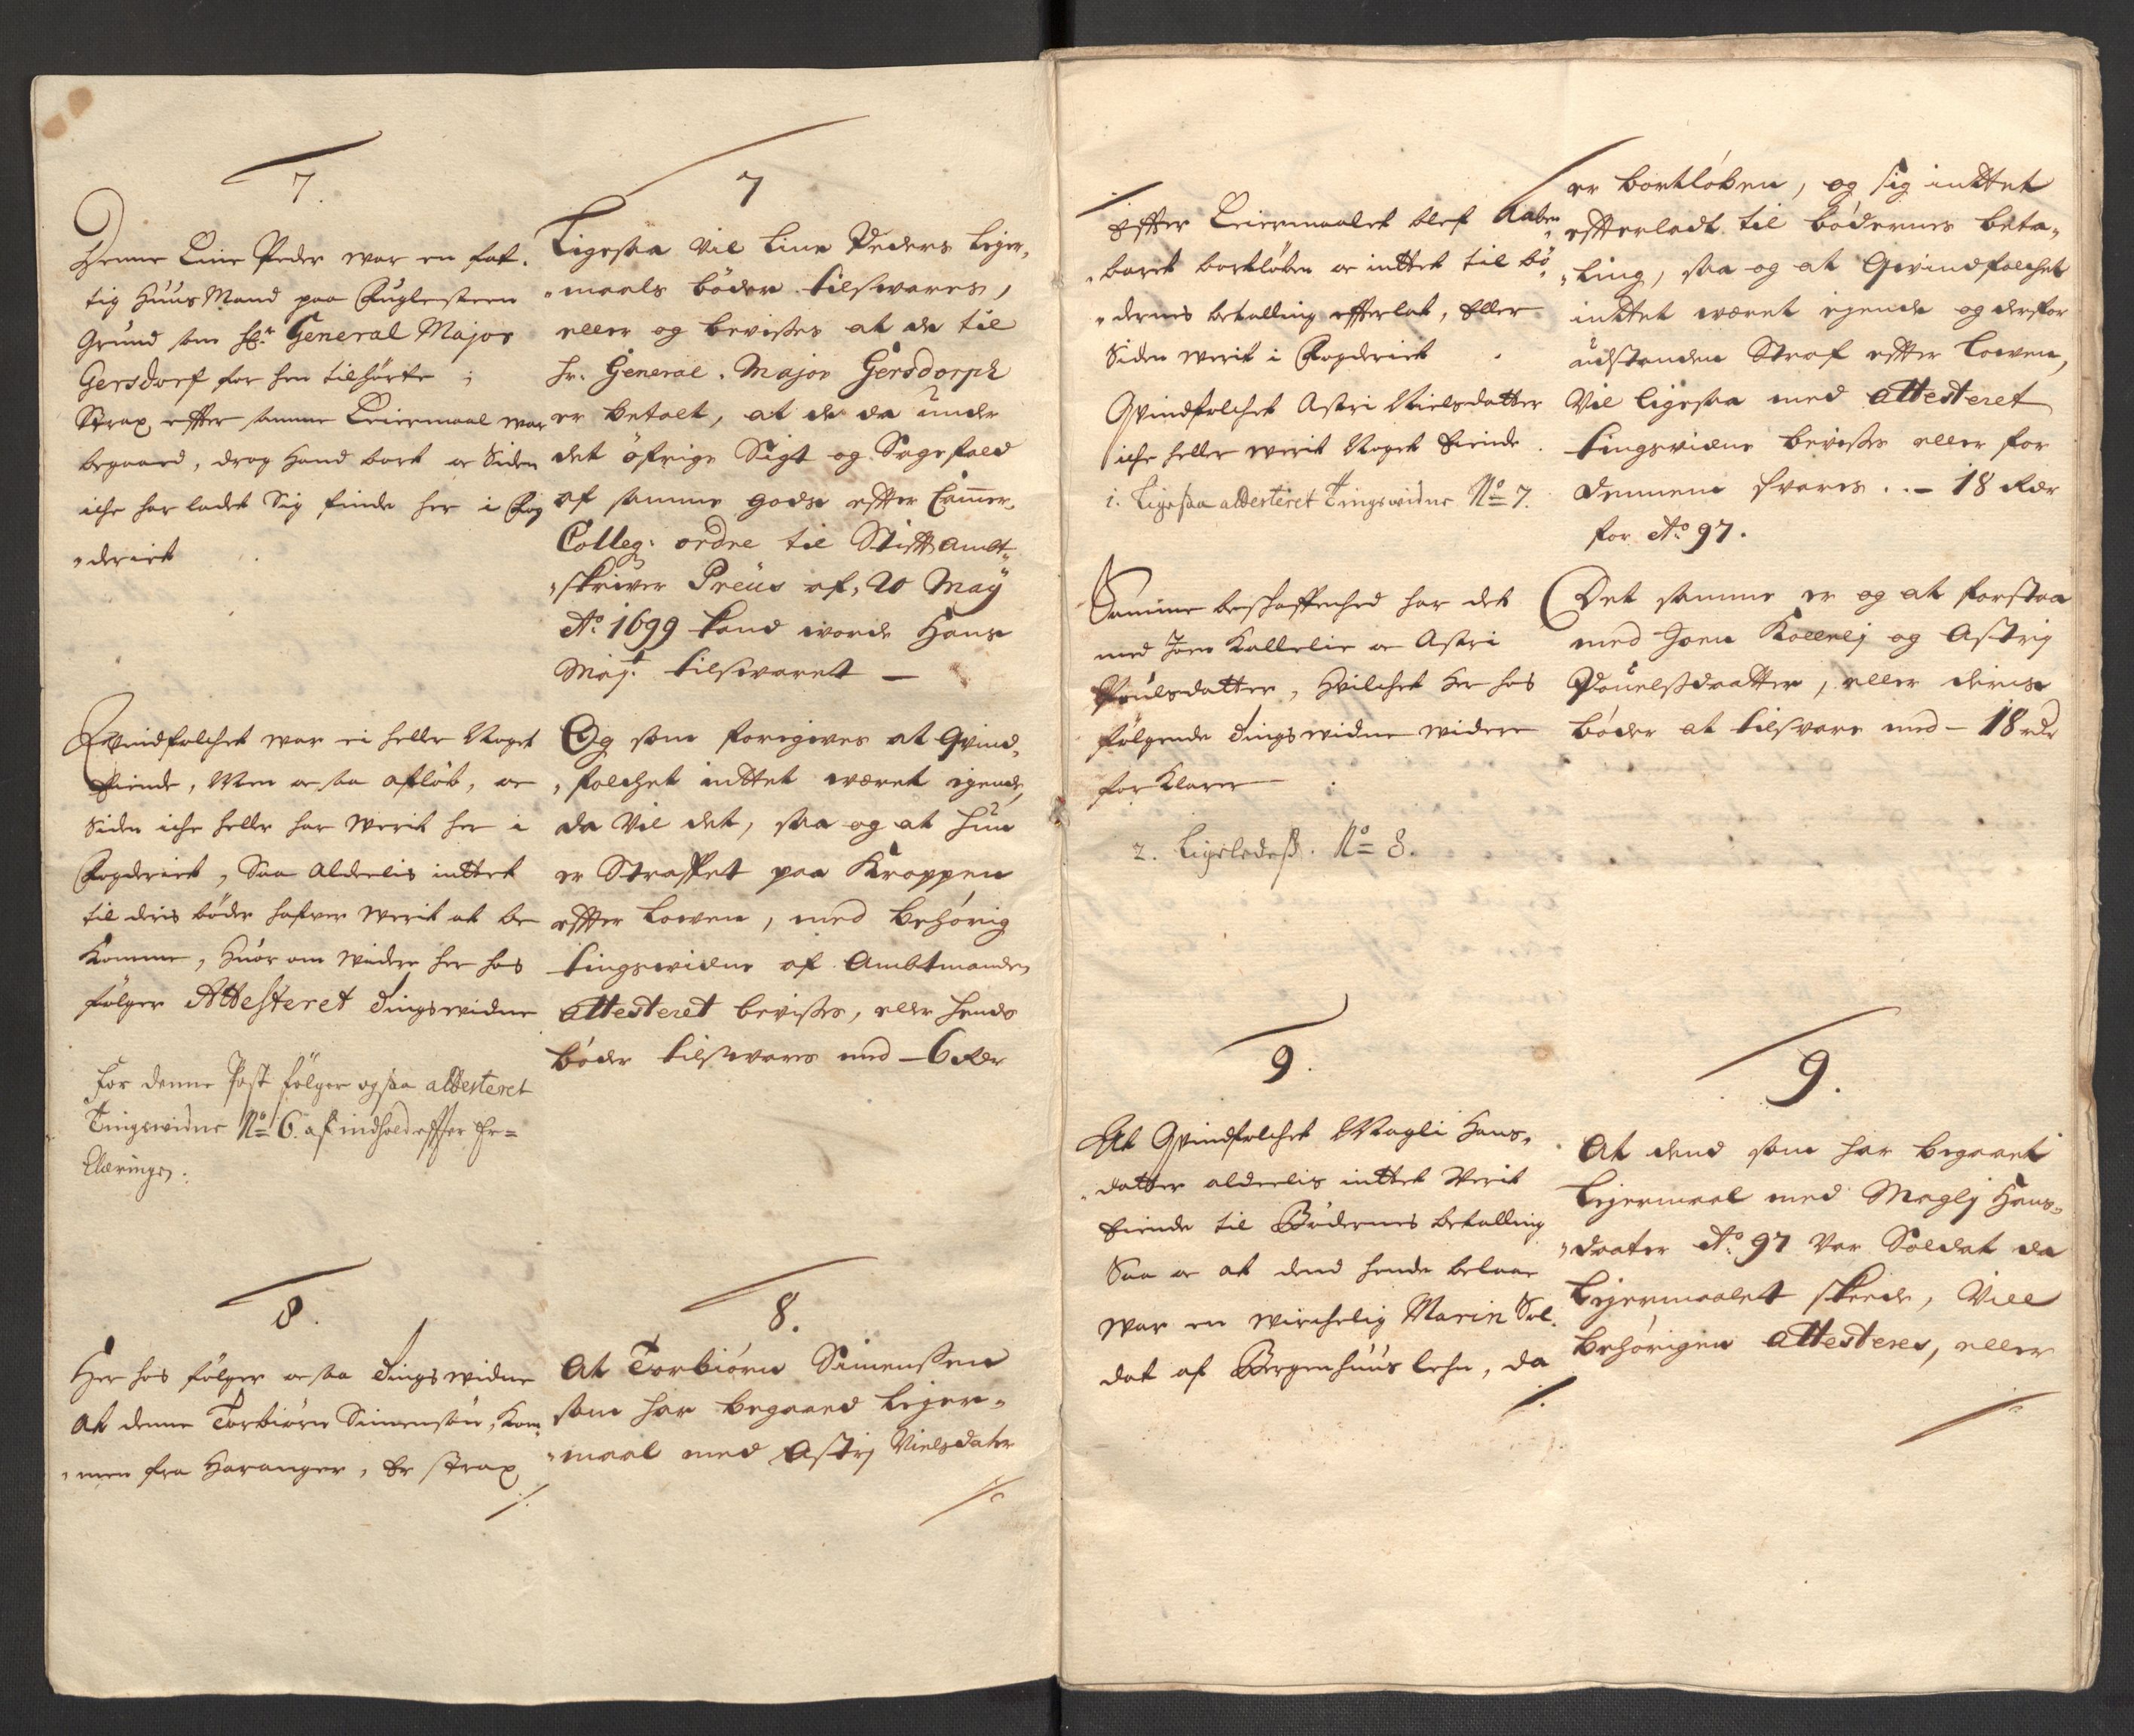 7.
Denne Linie Peder war en fat-
tig Huus Mand paa Fuglesteen
Grund som Hr. General Major
Gersdorf før hen tilhørte ;
Strax effter samme Leiermaal war
begaaed, drog Hand bort oc Siden
iche har ladet Sig finde her i Fog
„deriet
Qvindfolchet war ei heller Noget
Eiende, Men ocsaa afløb, oc
Siden iche heller har Werit her i
Fogderiet, Saa Aldeelis inttet
til deris bøder hafver Werit at be
Komme, Huor om widere her hos
følger Attesteret Tings widne
For denne Post følger ogsaa attesteret
Tingswidne No 6. af indhold effter Er=
klæringen.
8.
Her hos følger ocsaa Tings widne
At denne Torbiørn Simensøn, Kom„
„men fra Haranger, Er strax
7
Ligesaa vil Line Peders Lejer„
„maals bøder tilswares,
eller og bevisses at de til
Hr. General. Major Gersdorph
er betalt, at de da under
det øfrige Sigt og Sagefald
af samme gods effter Cammer„
Colleg: ordre til Stiftambt„
„skriver Preus af, 20 Maÿ
Ao 1699 kand worde Hans
Mayt. tilswaret —
Og som foregives at Qvind„
„folchet inttet wæret ejende,
da vil det, saa og at hun
er Straffet paa Kroppen
effter Lowen, med behørig
tingswidne af Ambtmanden
attesteret bevisses, eller hends
bøder tilswares med — 6 Rdr
8.
At Torbiørn Simenssen
som har begaaed Lejer„
„maal med Astrj Nielsdater
Effter Leiermaalet blef Aaben„
„baret bortløben oc inttet til bø„
„dernes betalling effterlat, Eller
Siden werit i Fogderiet
Qvindfolchet Astri Nielsdatter
iche heller werit Noget Eiende
1. Ligesaa attesteret Tingswidne No 7.
Samme beschaffenhed har det
med Joen Kallelie oc Astri
Poulsdatter, Hvilchet her hos
følgende Tings widne widere
for Klarer
2. Ligeledeß. No 8.
9.
At Qvindfolchet Magli Hans„
„datter aldeelis inttet Werit
Eiende til Bødernes betalling
Saa oc at dend hende belaae
war en wirchelig Marin Sol„
dat af Bergenhuus lehn, da
er bortløben, og sig inttet
effterladt til bødernes beta„
„ling, saa og at Qwindfolchet
inttet wæret ejende og derfor
udstanden Straf effter Lowen,
Vil ligesaa med attesteret
tingswidne bevisses eller for
dennem svares .. — 18 Rdr
for Ao 97.
Det samme er og at forstaa
med Joen Kollelj og Astrij
Pouelsdaatter, eller deris
bøder at tilsvare med — 18 rdr
9.
At dend som har begaaet
Lejermaal med Maglj Hans„
„daater Ao 97 var Soldat da
Lejermaalet skeede, vill
behørigen attesteres, eller